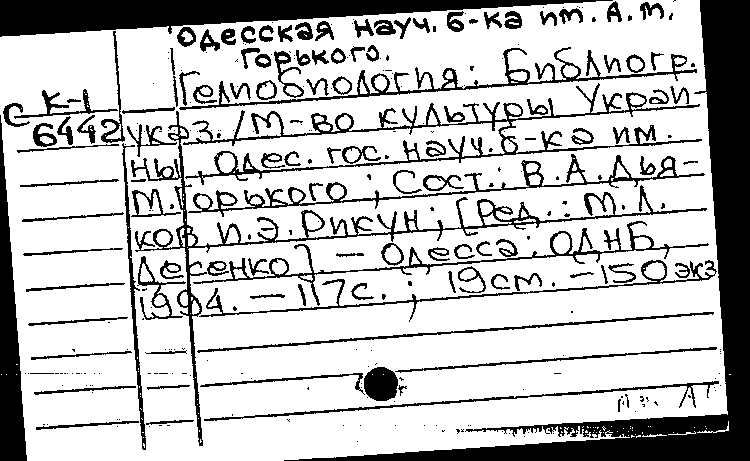 Одесская науч. б-ка им. А.М.
Горького.
Гелиобиология: Библиогр.
С К-1
6442
указ. / М-во культуры Украи-
ны, Одес. гос. науч. б-ка им.
М. Горького ; Сост.: В.А. Дья-
ков, И.Э. Рикун; [Ред.: М.Л.
Десенко]. – Одесса: ОДНБ,
1994. – 117с. ; 19см. – 150экз